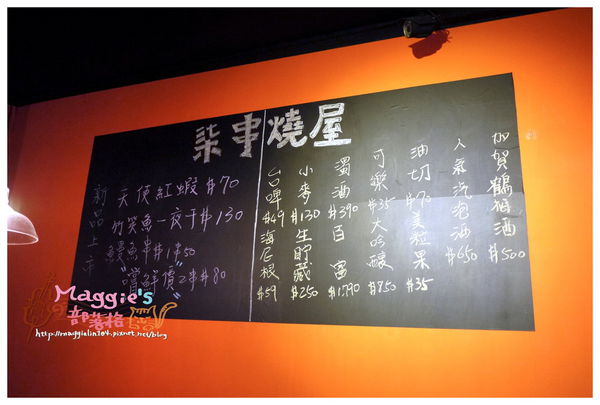 柒串燒屋
新品上市
天使紅蝦 #70
竹筴魚一夜干 #130
鰻魚串 1串50
"嚐鮮價" 2串 #80
台啤 #49 海尼根 #59
小麥 #130 生貯藏 #250
濁酒 #390 百 富 #1790
可樂 #35 大吟釀 #850
油切 #70 美粒果 #35
人氣汽泡酒 #650
加賀鶴梅酒 #500
Maggie's
部落格
http://maggielin104.pixnet.net/blog